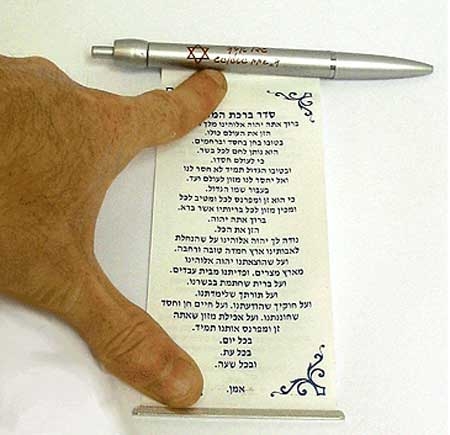 סדר ברכת
ברוך אתה יהוה אלוהינו מלך
הזן את העולם כולו.
בטובו בחן בחסד וברחמים.
הוא נותן לחם לכל בשר.
כי לעולם חסדו.
ובטובו הגדול תמיד לא חסר לנו
ואל יחסר לנו מזון לעולם ועד.
בעבור שמו הגדול.
כי הוא זן ומפרנס לכל ומטיב לכל
ומכין מזון לכל בריותיו אשר ברא.
ברוך אתה יהוה.
הזן את הכל.
נודה לך יהוה אלוהינו על שהנחלת
לאבותינו ארץ חמדה טובה ורחבה.
ועל שהוצאתנו יהוה אלוהינו
מארץ מצרים. ופדיתנו מבית עבדים.
ועל ברית שחתמת בבשרנו.
ועל תורתך שלימדתנו.
ועל חוקיך שהודעתנו. ועל חיים חן וחסד
שחוננתנו. ועל אכילת מזון שאתה
זן ומפרנס אותנו תמיד.
בכל יום.
בכל עת.
ובכל שעה.
אמן.